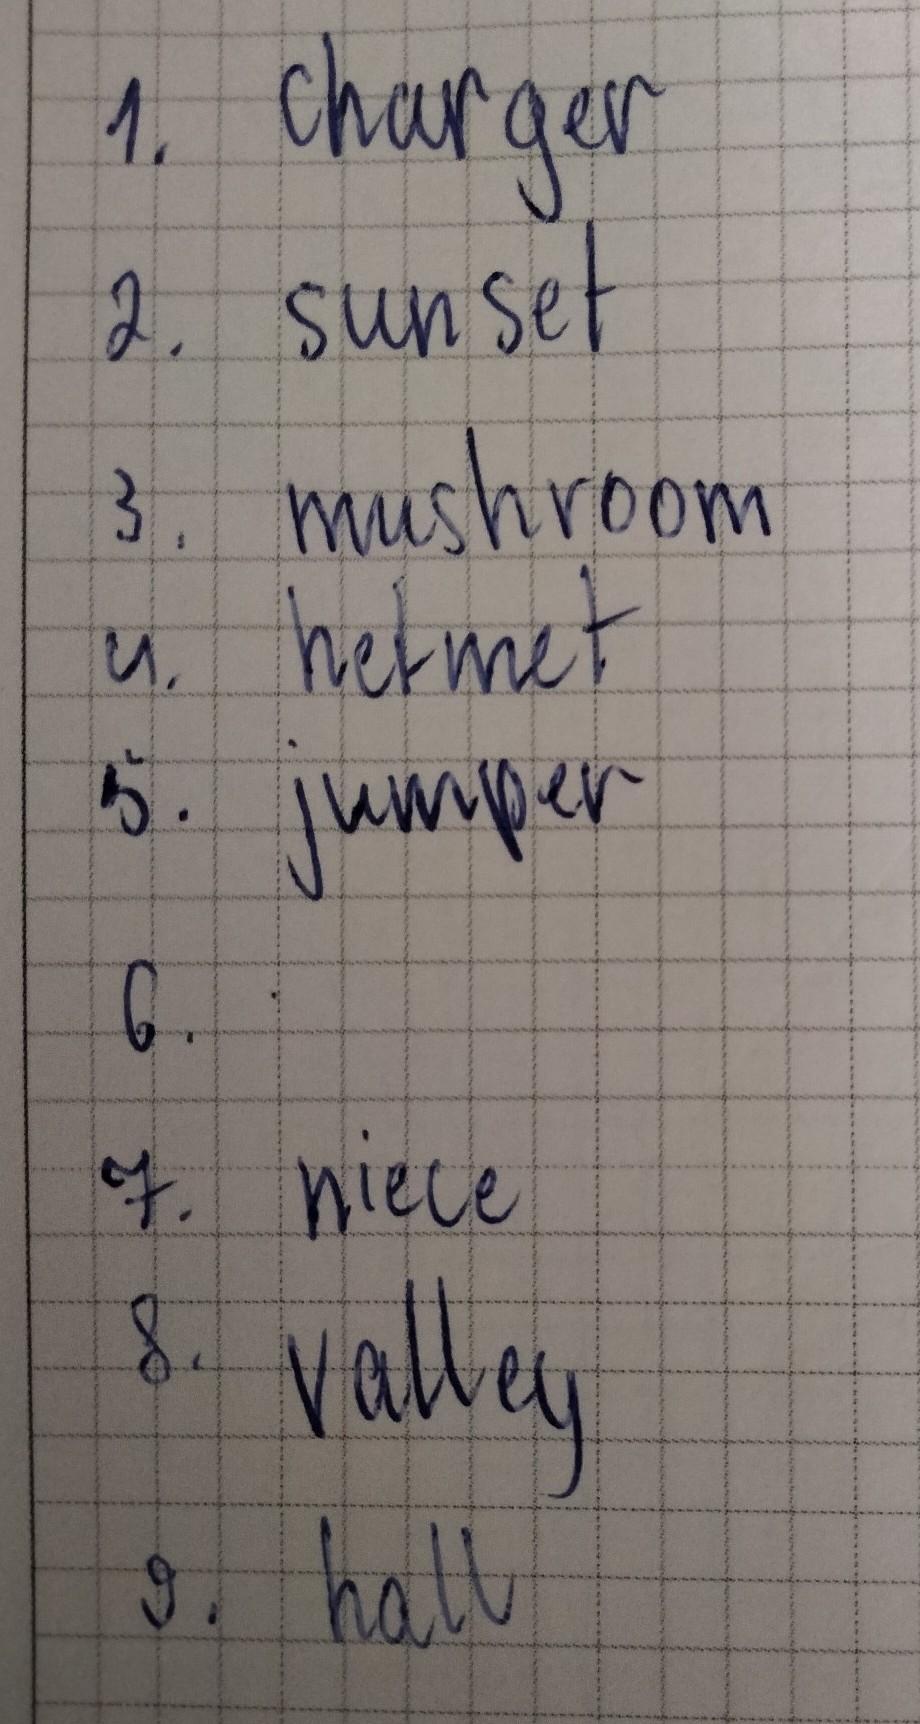 1. charger
2. sunset
3. mushroom
4. helmet
5. jumper
6.
7. niece
8. valley
9. hall